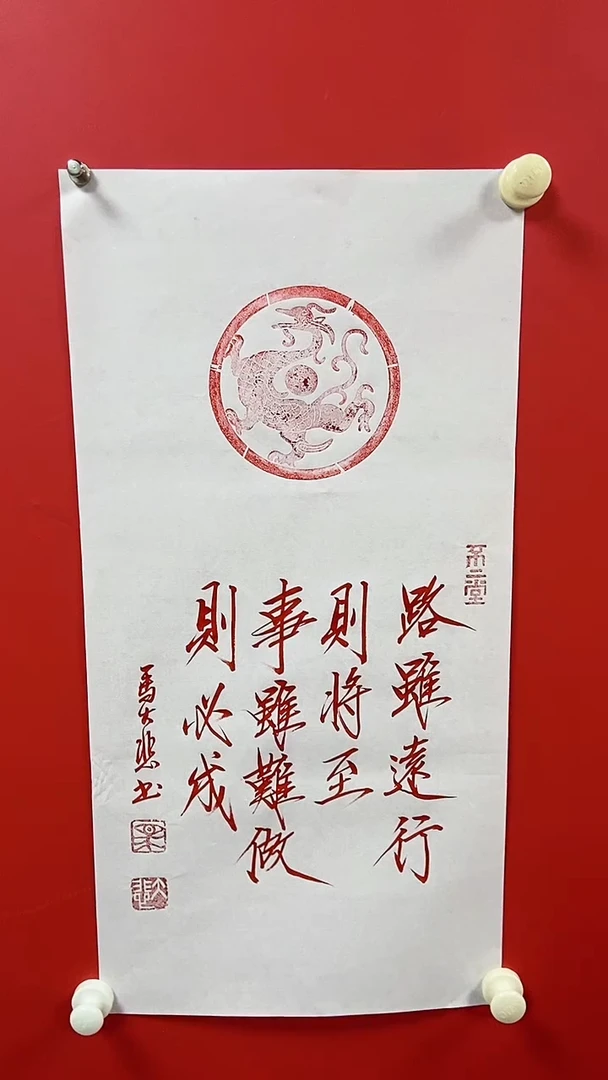 不二堂
路雖遠行
則將至
事雖難做
則必成
馬大悲书